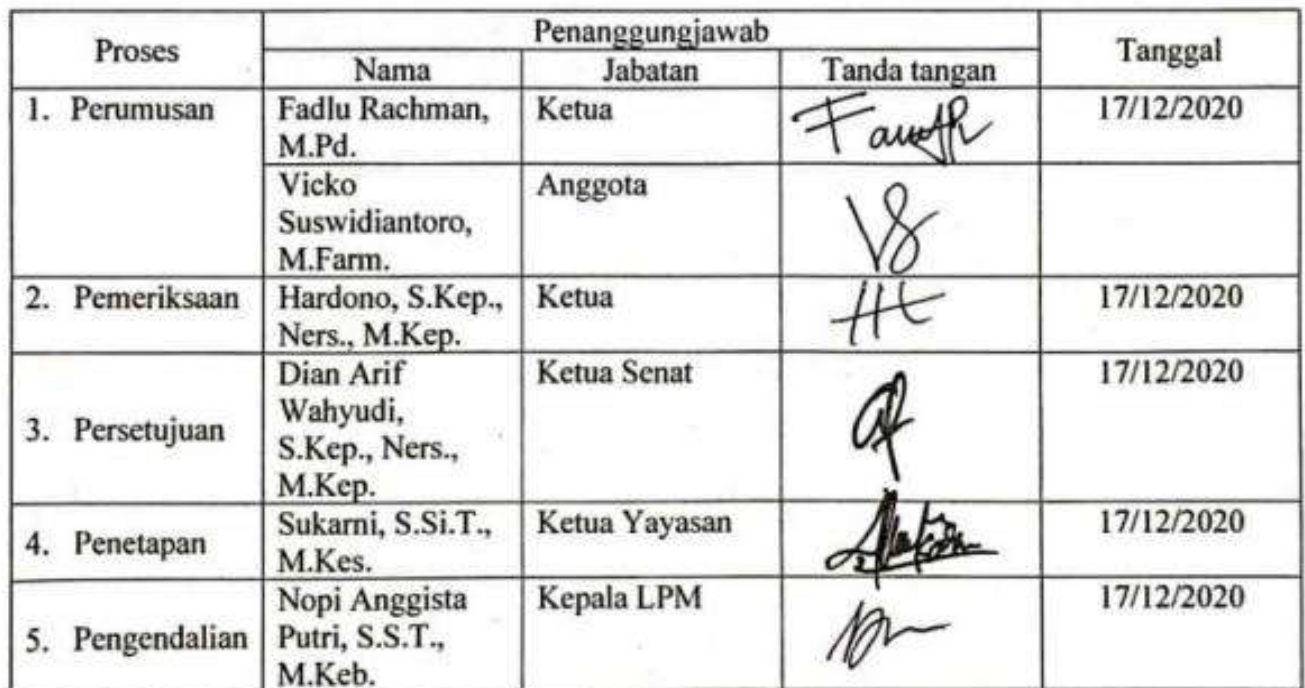 Proses
Penanggungjawab
Tanggal
Nama
Jabatan
Tanda tangan
1. Perumusan
Fadlu Rachman,
M.Pd.
Ketua
17/12/2020
Vicko
Suswidiantoro,
M.Farm.
Anggota
2. Pemeriksaan
Hardono, S.Kep.,
Ners., M.Kep.
Ketua
17/12/2020
3. Persetujuan
Dian Arif
Wahyudi,
S.Kep., Ners.,
M.Kep.
Ketua Senat
17/12/2020
4. Penetapan
Sukarni, S.Si.T.,
M.Kes.
Ketua Yayasan
17/12/2020
5. Pengendalian
Nopi Anggista
Putri, S.S.T.,
M.Keb.
Kepala LPM
17/12/2020